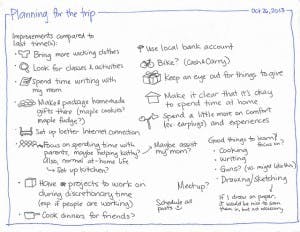 Planning for the trip
Oct 26, 2013
Improvements compared to
last time(s):
Bring more wicking clothes
Look for classes & activities
Spend time writing with
my mom
Make & package homemade
gifts there (maple cookies?
maple fudge?)
Set up better Internet connection
Focus on spending time with
parents, maybe helping Kathy?
Also, normal at-home life
→ Set up kitchen?
Home projects to work on
during discretionary time
(esp if people are working)
Cook dinners for friends?
Use local bank account
Bike? (Cash & Carry)
Keep an eye out for things to give
Make it clear that it's okay
to spend time at home
Spend a little more on comfort
(ex earplugs) and experiences
Maybe assist
my mom?
Good things to learn/
focus on?
• Cooking
• Writing
• Guns? (W might like this)
• Drawing/Sketching
Meetup?
Schedule
posts
If I draw on paper,
it would be nice to scan
them in, but not necessary